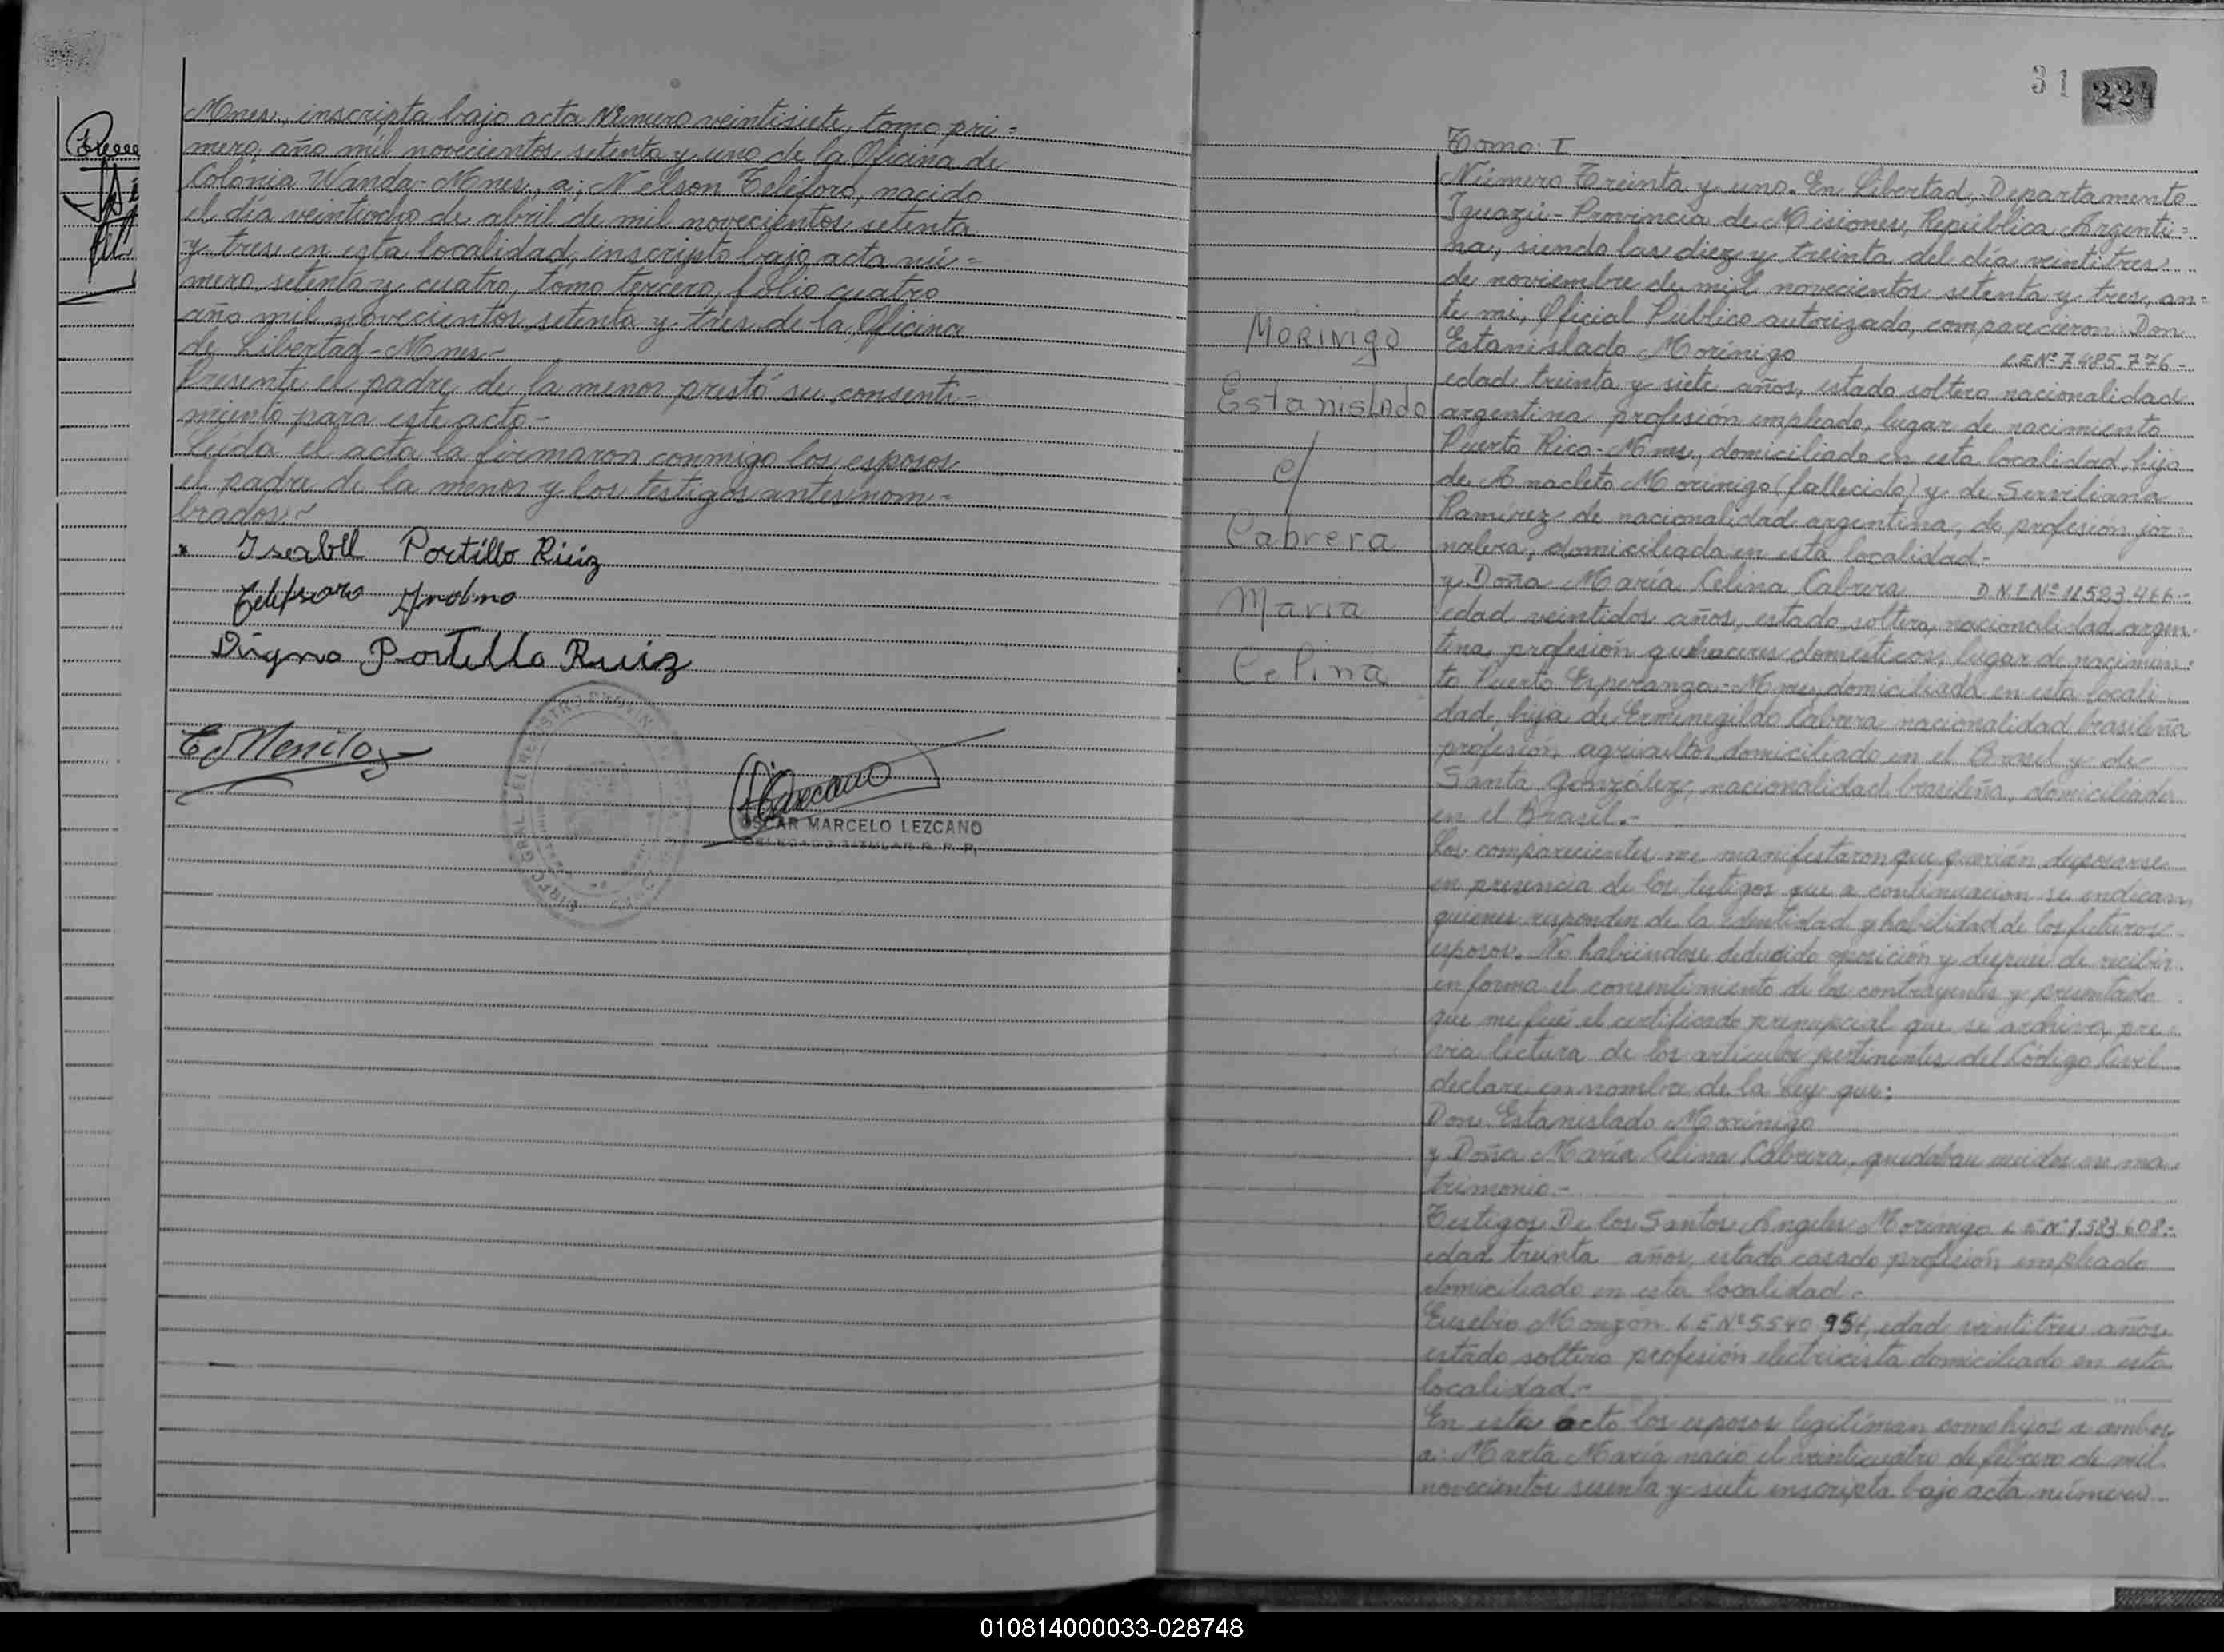 Mnes., inscripta bajo acta Número veintisiete, tomo pri=
mero, año mil novecientos setenta y uno de la Oficina de
Colonia Wanda-Mnes., a; Nelson Teléforo, nacido
el día veintiocho de abril de mil novecientos setenta
y tres en esta localidad, inscripto bajo acta nú=
mero setenta y cuatro, tomo tercero, folio cuatro
año mil novecientos setenta y tres de la Oficina
de Libertad-Mnes.-
Presente el padre de la menor prestó su consenti=
miento para este acto.-
Leída el acta la firmaron conmigo los esposos
el padre de la menor y los testigos antes nom=
brados.-
x Isabel Portillo Ruiz
Digno Portillo Ruiz
OSCAR MARCELO LEZCANO
DELEGADO TITULAR R. P. P.
31 224
Tomo: I
Número Treinta y uno. En Libertad, Departamento
Iguazú-Provincia de Misiones, República Argenti=
na, siendo las diez y treinta del día veintitres
de noviembre de mil novecientos setenta y tres, an=
te mi, Oficial Público autorizado, comparecieron: Don
Estanislado Morinigo L.E.Nº 7.485.776-
edad treinta y siete años, estado soltero nacionalidad
argentina profesión empleado, lugar de nacimiento
Puerto Rico-Mnes., domiciliado en esta localidad, hijo
de Anacleto Morinigo (fallecido) y de Serviliana
Ramirez de nacionalidad argentina, de profesión jor=
nalera, domiciliada en esta localidad.-
y Doña María Celina Cabrera D.N.I.Nº
edad veintidos años, estado soltera, nacionalidad argen-
tina, profesión quehaceres domesticos, lugar de nacimien-
to Puerto Esperanza-Mnes, domiciliada en esta locali
dad, hija de Ermenegildo Cabrera nacionalidad brasileña
profesión agricultor domiciliado en el Brasil y de
Santa González, nacionalidad brasileña, domiciliada
en el Brasil.-
Los comparecientes me manifestaron que querían desposarse
en presencia de los testigos que a continuacion se indican
quienes responden de la identidad y habilidad de los futuros
esposos. No habiéndose deducido oposición y despues de recibir
en forma el consentimiento de los contrayentes y presentado
que me fué el certificado prenupcial que se archiva, pre
via lectura de los artículos pertinentes del Código Civil
declaré en nombre de la Ley que:
Don Estanislado Morinigo
y Doña María Celina Cabrera, quedaban unidos en ma-
trimonio.-
Testigos De los Santos Angeles Morinigo L.E.Nº 7.583.608-
edad treinta años, estado casado profesión empleado
domiciliado en esta localidad.-
Eusebio Monzón L.E.Nº 5.540.954, edad veintitres años
estado soltero profesión electricista domiciliado en esta
localidad.-
En este acto los esposos legitiman como hijos a ambos
a: Marta María nació el veinticuatro de febrero de mil
novecientos sesenta y siete inscripta bajo acta número
Morinigo
Estanislado
c/
Cabrera
María
Celina
010814000033-028748